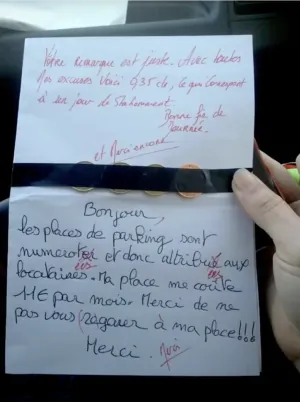 Votre remarque est juste. Avec toutes
mes excuses voici 0,35 cts, ce qui correspond
à un jour de stationnement.
Bonne fin de
Journée.
et Merci encore
Bonjour,
les places de parking sont
numeroter és et donc attribué ées aux
locataires. Ma place me coûte
11€ par mois. Merci de ne
pas vous garer à ma place!!!
Merci. Merci